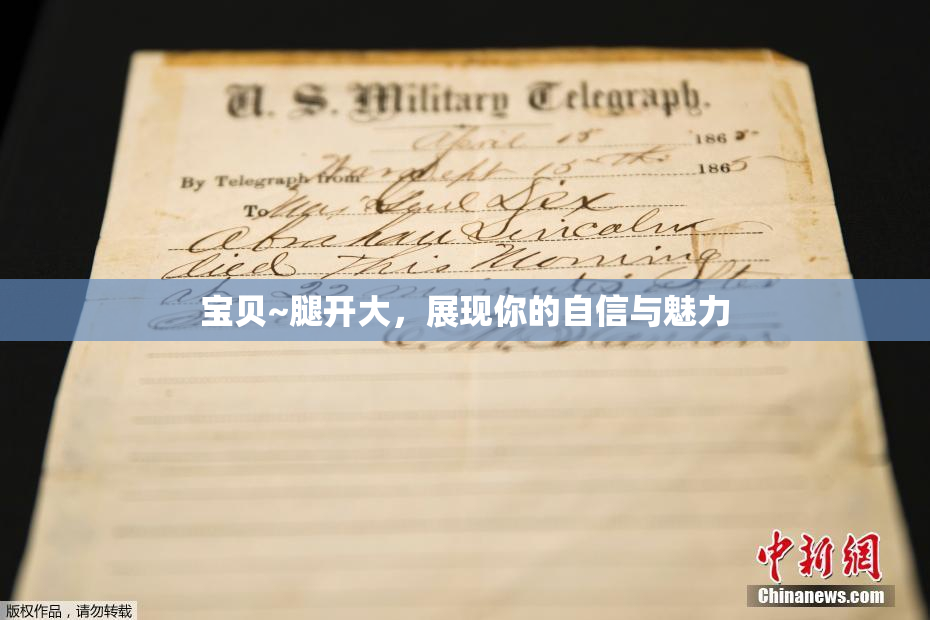 U. S. Military Telegraph.
April 15 1865
By Telegraph from War Dept 15th 1865
To Maj Genl Dix
Abraham Lincoln
died This Morning
at 22 minutes after
宝贝~腿开大，展现你的自信与魅力
中新網
Chinanews.com
版权作品，请勿转载